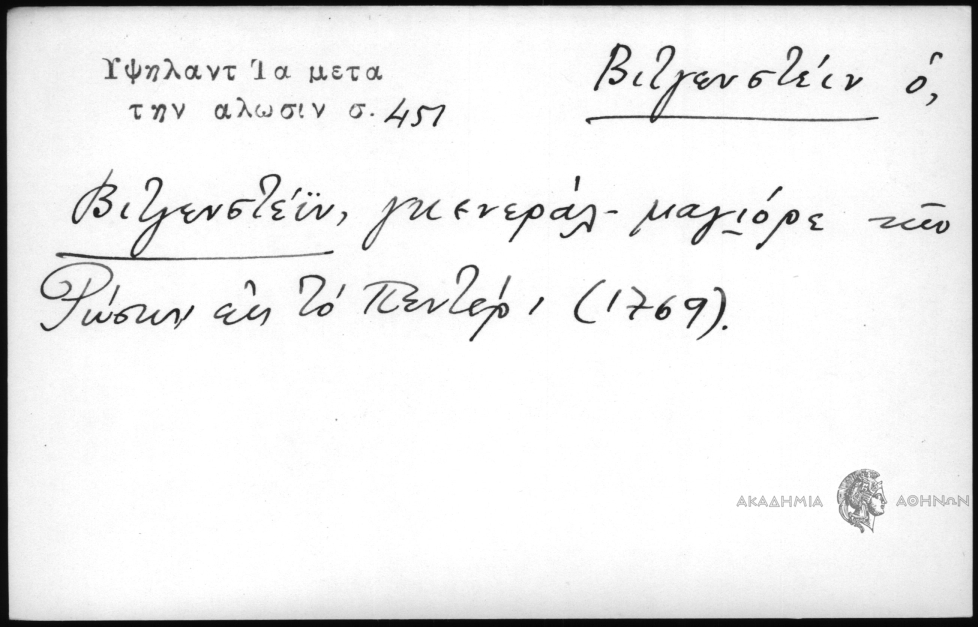 Υψηλαντ Ἰα μετα
την αλωσιν σ. 451
Βιτγενστέιν ὁ,
Βιτγενστέϊν, γκενεράλ-μαγιόρε τῶν
Ρώσων εἰς τό Πεντέρ, (1769).
ΑΚΑΔΗΜΙΑ ΑΘΗΝΩΝ